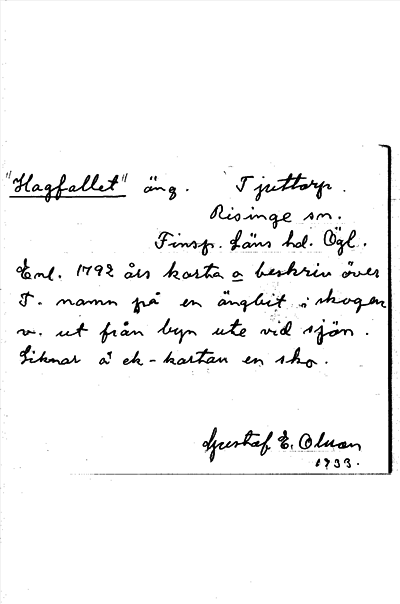 "Hagfallet" äng. Tjuttorp.
Risinge sn.
Finsp. Läns hd. Ögl.
Enl. 1792 års karta o beskriv över
T. namn på en ängbit i skogen
v. ut från byn ute vid sjön.
Liknar å ek-kartan en sko.
Gustaf E. Olsson
1933.